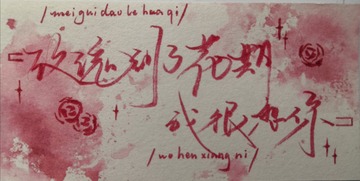 /mei gui dao le hua qi/
「玫瑰到了花期
我很想你」
/wo hen xiang ni/